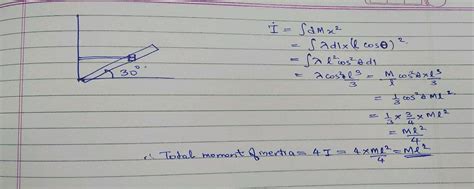 İ = ∫dMx²
= ∫λdlx(l cosθ)²
= ∫λl²cos²θdl
= λcos²θl³/3 = M/l cos²θxl³/3
= 1/3 cos²θ Ml²
= 1/3 x 3/4 x Ml²
= Ml²/4
30°
∴ Total moment of inertia = 4I = 4xMl²/4 = Ml²